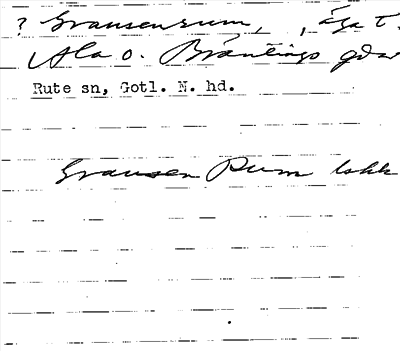 ? Gransensrum, , äga t.
Ala o. Bräntings gdar
Rute sn, Gotl. N. hd.
Gransen Rum lskk